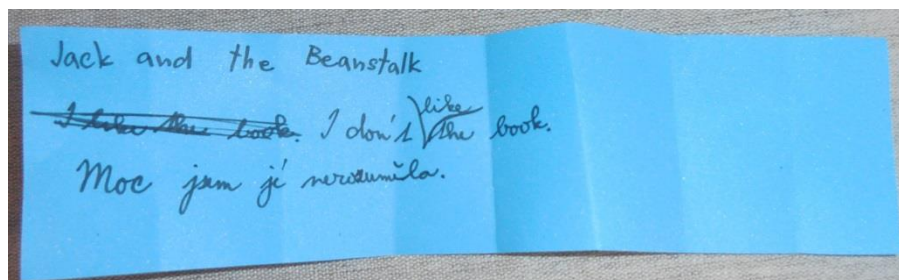 Jack and the Beanstalk
I like the book. I don't like the book.
Moc jsem jí nerozuměla.